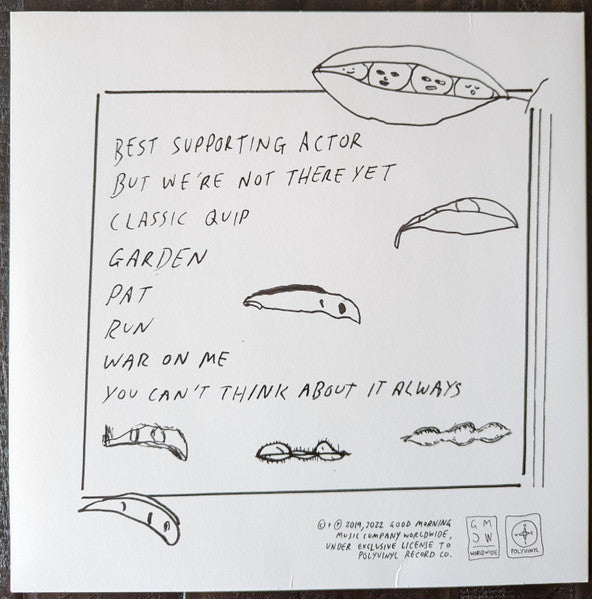 BEST SUPPORTING ACTOR
BUT WE'RE NOT THERE YET
CLASSIC QUIP
GARDEN
PAT
RUN
WAR ON ME
YOU CAN'T THINK ABOUT IT ALWAYS
© + ℗ 2019, 2022 GOOD MORNING
MUSIC COMPANY WORLDWIDE,
UNDER EXCLUSIVE LICENSE TO
POLYVINYL RECORD CO.
G M
C W
WORLDWIDE
POLYVINYL